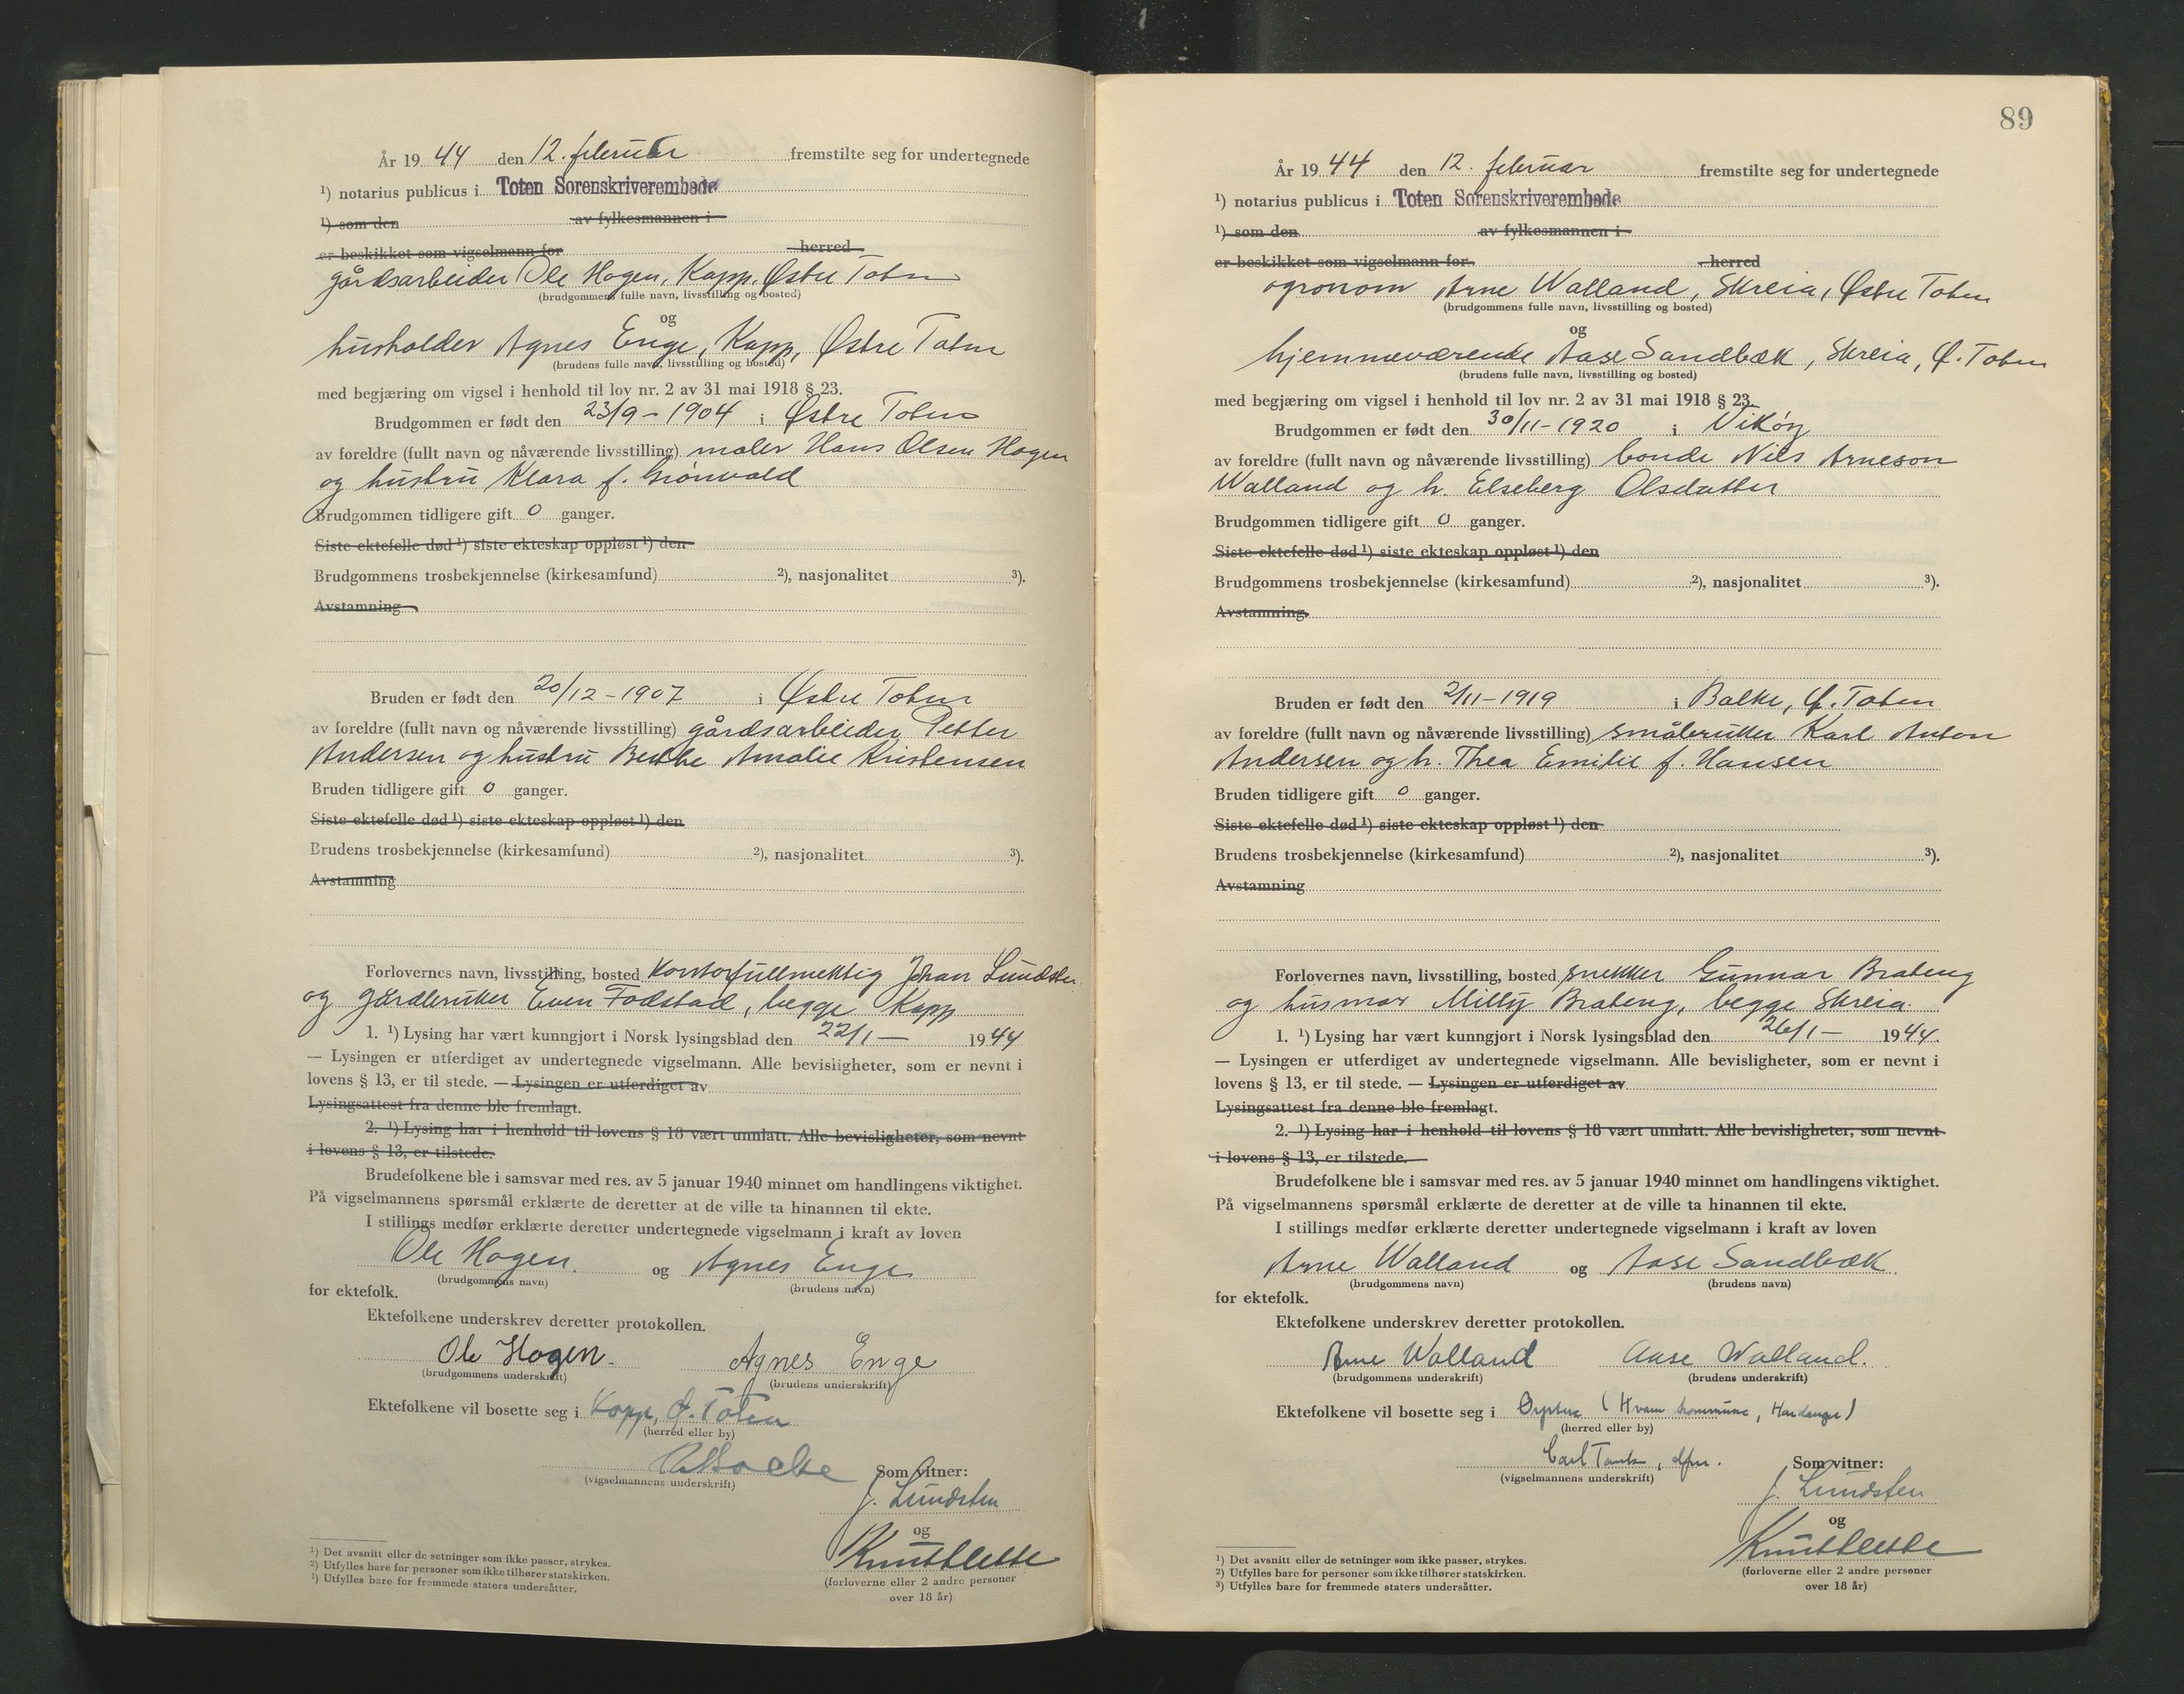 År 19 44 den 12. februar fremstilte seg for undertegnede
¹) notarius publicus i Toten Sorenskriverembede
¹) som den av fylkesmannen i
er beskikket som vigselmann for herred
gårdsarbeider Ole Hagen, Kapp, Østre Toten
(brudgommens fulle navn, livsstilling og bosted)
og
husholder Agnes Enge, Kapp, Østre Toten
(brudens fulle navn, livsstilling og bosted)
med begjæring om vigsel i henhold til lov nr. 2 av 31 mai 1918 § 23.
Brudgommen er født den 23/9 - 1904 i Østre Toten
av foreldre (fullt navn og nåværende livsstilling) maler Hans Olsen Hagen
og hustru Klara f. Grönvold
Brudgommen tidligere gift 0 ganger.
Siste ektefelle død ¹) siste ekteskap oppløst ¹) den
Brudgommens trosbekjennelse (kirkesamfund) ²), nasjonalitet ³).
Avstamning
Bruden er født den 20/12 - 1907 i Østre Toten
av foreldre (fullt navn og nåværende livsstilling) gårdsarbeider Petter
Andersen og hustru Berthe Amalie Kristensen
Bruden tidligere gift 0 ganger.
Siste ektefelle død ¹) siste ekteskap oppløst ¹) den
Brudens trosbekjennelse (kirkesamfund) ²), nasjonalitet ³).
Avstamning
Forlovernes navn, livsstilling, bosted kontorfullmektig Johan Lundsten
og gårdbruker Even Fodstad, begge Kapp
1. ¹) Lysing har vært kunngjort i Norsk lysingsblad den 22/1 — 1944
— Lysingen er utferdiget av undertegnede vigselmann. Alle bevisligheter, som er nevnt i
lovens § 13, er til stede. — Lysingen er utferdiget av
Lysingsattest fra denne ble fremlagt.
2. ¹) Lysing har i henhold til lovens § 18 vært unnlatt. Alle bevisligheter, som nevnt
i lovens § 13, er tilstede.
Brudefolkene ble i samsvar med res. av 5 januar 1940 minnet om handlingens viktighet.
På vigselmannens spørsmål erklærte de deretter at de ville ta hinannen til ekte.
I stillings medfør erklærte deretter undertegnede vigselmann i kraft av loven
Ole Hagen. og Agnes Enge
(brudgommens navn) (brudens navn)
for ektefolk.
Ektefolkene underskrev deretter protokollen.
Ole Hagen. Agnes Enge
(brudgommens underskrift) (brudens underskrift)
Ektefolkene vil bosette seg i Kapp, Ø. Toten
(herred eller by)
(vigselmannens underskrift) Som vitner:
J. Lundsten
og
(forloverne eller 2 andre personer
over 18 år)
¹) Det avsnitt eller de setninger som ikke passer, strykes.
²) Utfylles bare for personer som ikke tilhører statskirken.
³) Utfylles bare for fremmede staters undersåtter.
89
År 19 44 den 12. februar fremstilte seg for undertegnede
¹) notarius publicus i Toten Sorenskriverembede
¹) som den av fylkesmannen i
er beskikket som vigselmann for herred
agronom Arne Walland, Skreia, Østre Toten
(brudgommens fulle navn, livsstilling og bosted)
og
hjemmeværende Aase Sandbæk, Skreia, Ø. Toten
(brudens fulle navn, livsstilling og bosted)
med begjæring om vigsel i henhold til lov nr. 2 av 31 mai 1918 § 23.
Brudgommen er født den 30/11 - 1920 i Vikøy
av foreldre (fullt navn og nåværende livsstilling) bonde Nils Arneson
Walland og h. Elseberg Olsdatter
Brudgommen tidligere gift 0 ganger.
Siste ektefelle død ¹) siste ekteskap oppløst ¹) den
Brudgommens trosbekjennelse (kirkesamfund) ²), nasjonalitet ³).
Avstamning
Bruden er født den 2/11 - 1919 i Balke, Ø. Toten
av foreldre (fullt navn og nåværende livsstilling) småbruker Karl Anton
Andersen og h. Thea Emilie f. Hansen
Bruden tidligere gift 0 ganger.
Siste ektefelle død ¹) siste ekteskap oppløst ¹) den
Brudens trosbekjennelse (kirkesamfund) ²), nasjonalitet ³).
Avstamning
Forlovernes navn, livsstilling, bosted snekker Gunnar Brateng
og husmor Milly Brateng, begge Skreia.
1. ¹) Lysing har vært kunngjort i Norsk lysingsblad den 26/1 — 1944.
— Lysingen er utferdiget av undertegnede vigselmann. Alle bevisligheter, som er nevnt i
lovens § 13, er til stede. — Lysingen er utferdiget av
Lysingsattest fra denne ble fremlagt.
2. ¹) Lysing har i henhold til lovens § 18 vært unnlatt. Alle bevisligheter, som nevnt
i lovens § 13, er tilstede.
Brudefolkene ble i samsvar med res. av 5 januar 1940 minnet om handlingens viktighet.
På vigselmannens spørsmål erklærte de deretter at de ville ta hinannen til ekte.
I stillings medfør erklærte deretter undertegnede vigselmann i kraft av loven
Arne Walland og Aase Sandbæk
(brudgommens navn) (brudens navn)
for ektefolk.
Ektefolkene underskrev deretter protokollen.
Arne Walland Aase Walland.
(brudgommens underskrift) (brudens underskrift)
Ektefolkene vil bosette seg i (Kvam kommune, Hardanger)
(herred eller by)
Carl
(vigselmannens underskrift) Som vitner:
J. Lundsten
og
(forloverne eller 2 andre personer
over 18 år)
¹) Det avsnitt eller de setninger som ikke passer, strykes.
²) Utfylles bare for personer som ikke tilhører statskirken.
³) Utfylles bare for fremmede staters undersåtter.